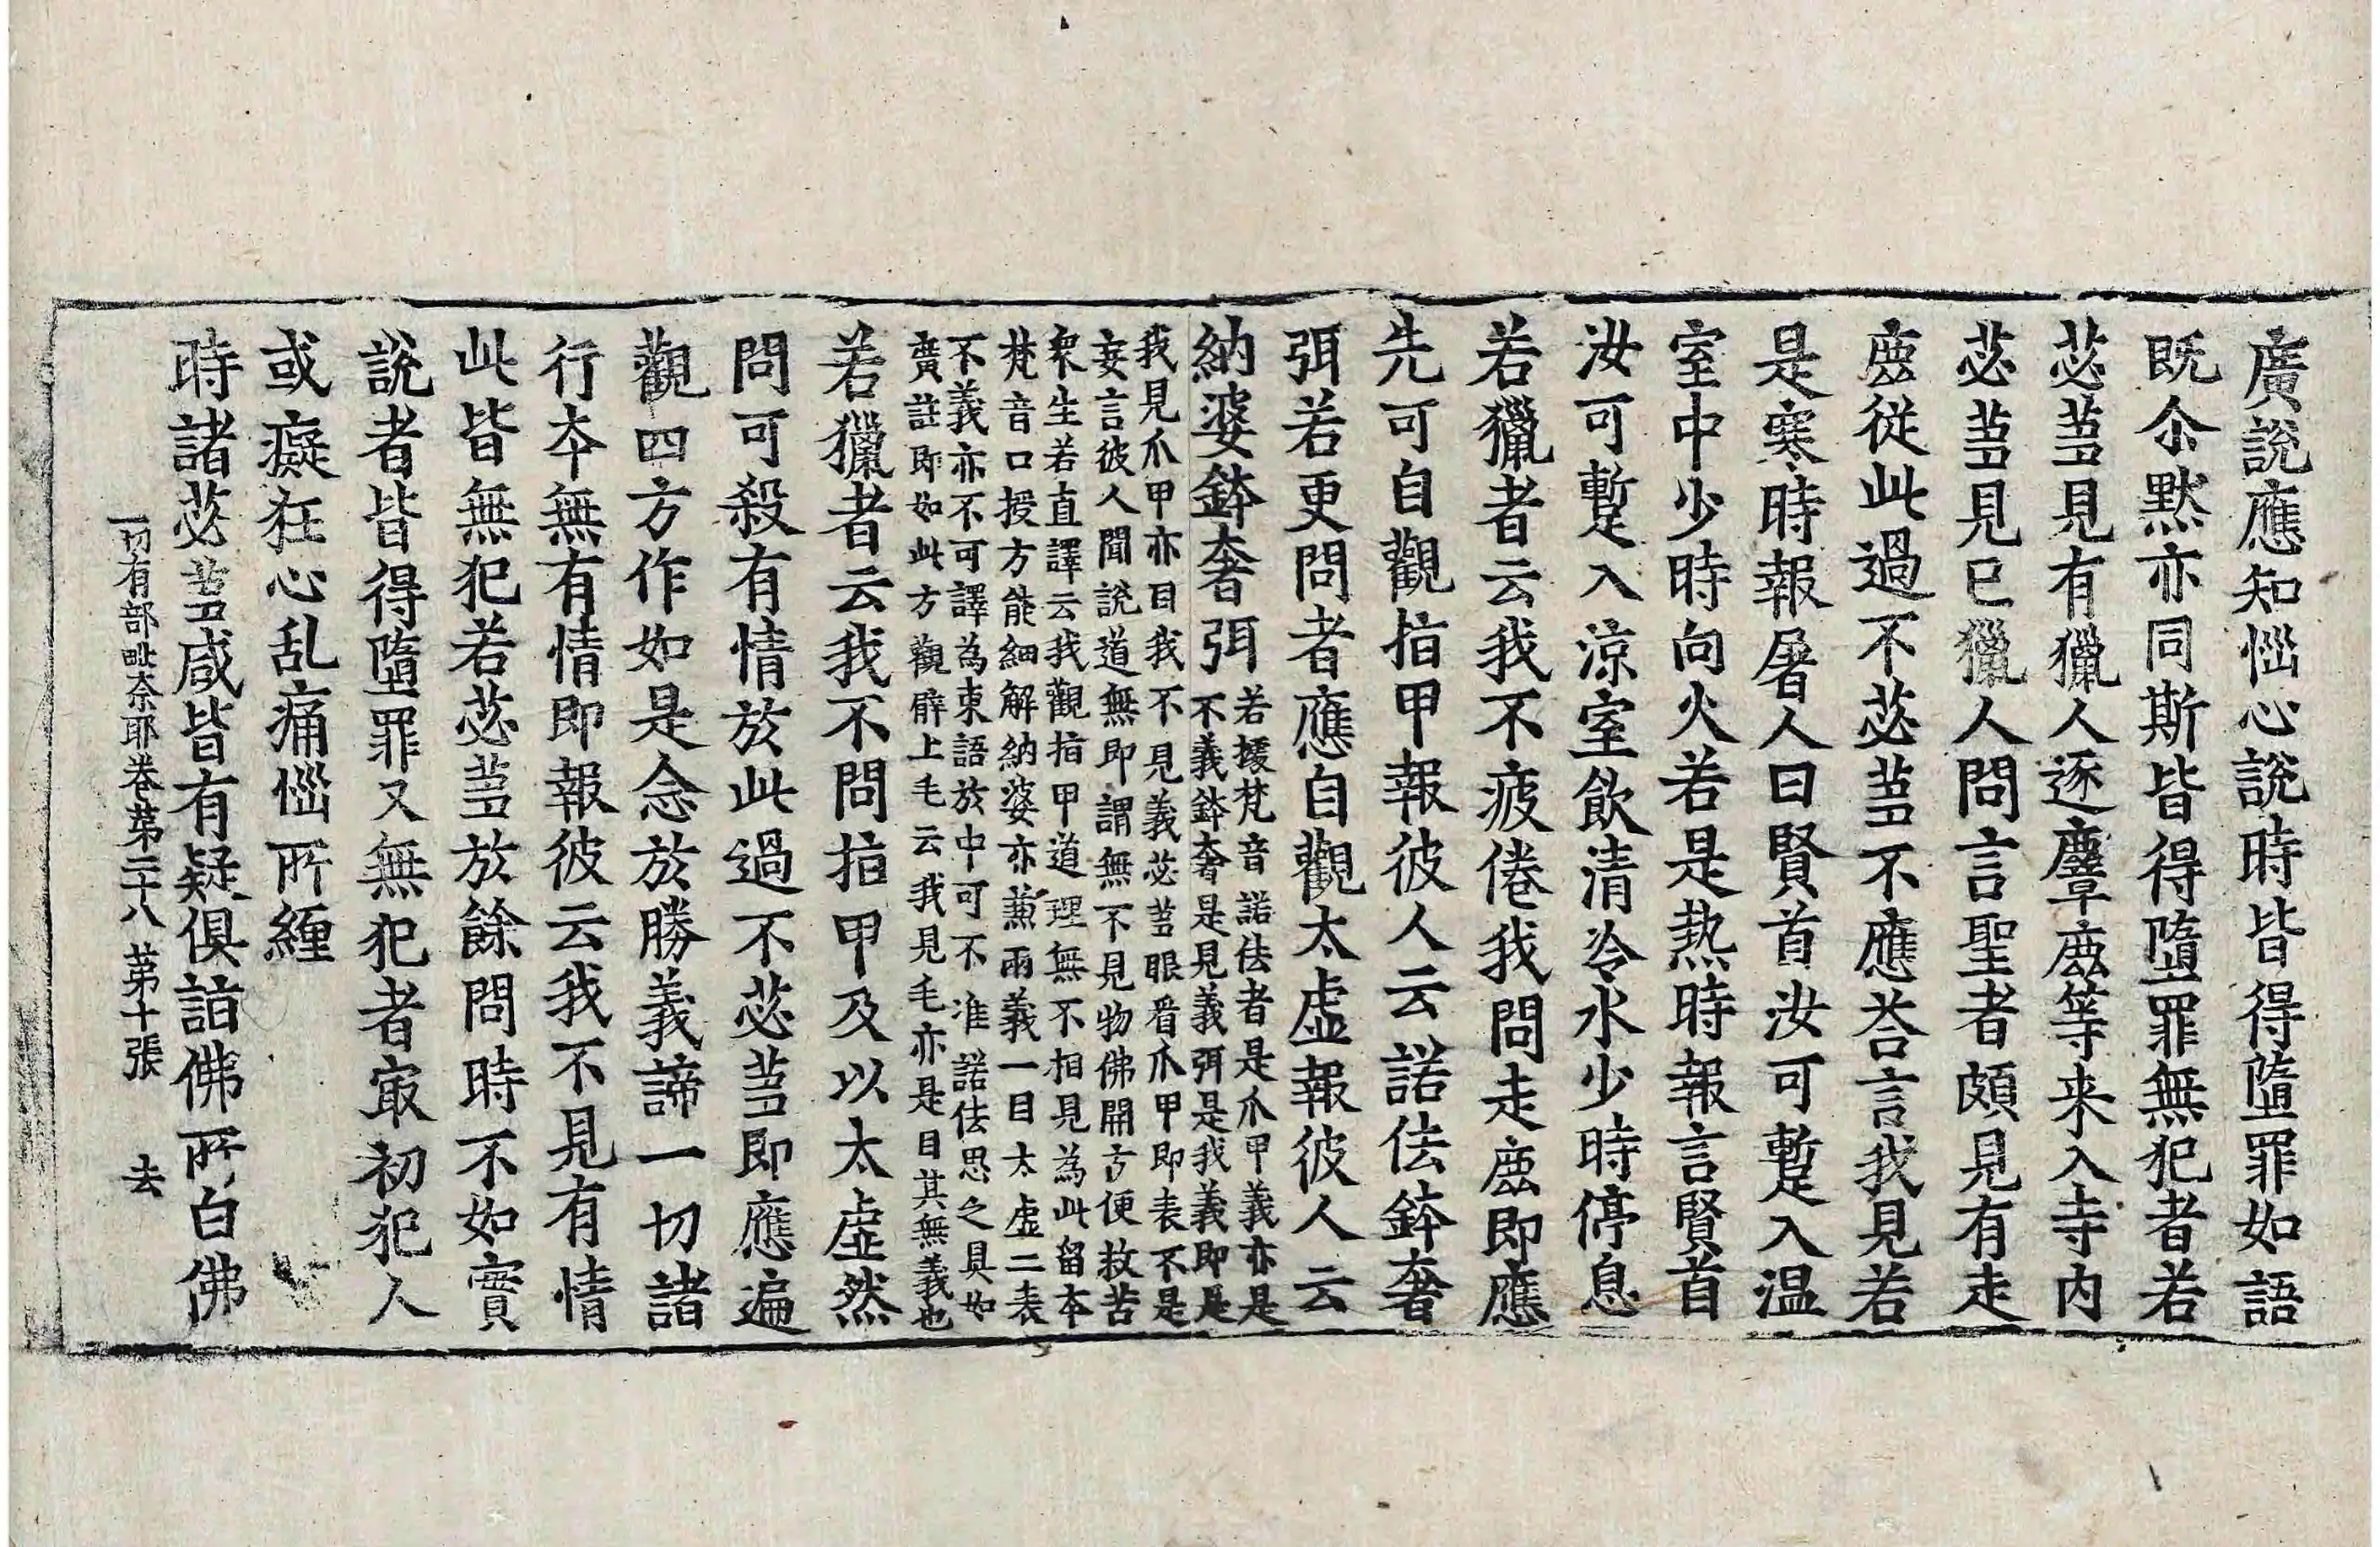 廣說應知惱心說時皆得墮罪如語
既尒默亦同斯皆得墮罪無犯者若
苾蒭見有獵人逐麞鹿等来入寺內
苾蒭見已獵人問言聖者頗見有走
鹿從此過不苾蒭不應荅言我見若
是寒時報屠人曰賢首汝可暫入温
室中少時向火若是熱時報言賢首
汝可暫入涼室飲清冷水少時停息
若獵者云我不疲倦我問走鹿即應
先可自觀指甲報彼人云諾佉鉢奢
弭若更問者應自觀太虛報彼人云
納婆鉢奢弭
若據梵音諾佉者是爪甲義亦是
不義鉢奢是見義弭是我義即是
我見爪甲亦目我不見義苾蒭眼看爪甲即表不是
妄言彼人聞說道無即謂無不見物佛開方便救苦
衆生若直譯云我觀指甲道理無不相見為此留本
梵音口授方能細解納婆亦蕉兩義一目太虛二表
不義亦不可譯為東語於中可不准諾佉思之具如
廣註即如此方觀臂上毛云我見毛亦是目其無義也
若獵者云我不問指甲及以太虛然
問可殺有情於此過不苾蒭即應遍
觀四方作如是念於勝義諦一切諸
行本無有情即報彼云我不見有情
此皆無犯若苾蒭於餘問時不如實
說者皆得墮罪又無犯者㝡初犯人
或癡狂心乱痛惱所纏
時諸苾蒭咸皆有疑俱詣佛所白佛
一切有部毗奈耶卷第二十八 第十張 去